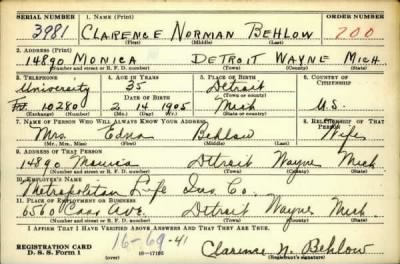 SERIAL NUMBER 1. NAME (Print) ORDER NUMBER
3981 CLARENCE NORMAN BEHLOW 200
(First) (Middle) (Last)
2. ADDRESS (Print)
14890 MONICA DETROIT WAYNE MICH.
(Number and street or R. F. D. number) (Town) (County) (State)
3. TELEPHONE 4. AGE IN YEARS 5. PLACE OF BIRTH 6. COUNTRY OF CITIZENSHIP
University 35 Detroit
DATE OF BIRTH (Town or county)
10280 2 14 1905 Mich U.S.
(Exchange) (Number) (Mo.) (Day) (Yr.) (State or country)
7. NAME OF PERSON WHO WILL ALWAYS KNOW YOUR ADDRESS 8. RELATIONSHIP OF THAT PERSON
Mrs. Edna Behlow Wife
(Mr., Mrs., Miss) (First) (Middle) (Last)
9. ADDRESS OF THAT PERSON
14890 Monica Detroit Wayne Mich
(Number and street or R. F. D. number) (Town) (County) (State)
10. EMPLOYER'S NAME
Metropolitan Life Ins. Co.
11. PLACE OF EMPLOYMENT OR BUSINESS
6560 Cass Ave Detroit Wayne Mich.
(Number and street or R. F. D. number) (Town) (County) (State)
I AFFIRM THAT I HAVE VERIFIED ABOVE ANSWERS AND THAT THEY ARE TRUE.
16-69-41
REGISTRATION CARD Clarence N. Behlow
D. S. S. Form 1 (over) 16—17105 (Registrant's signature)